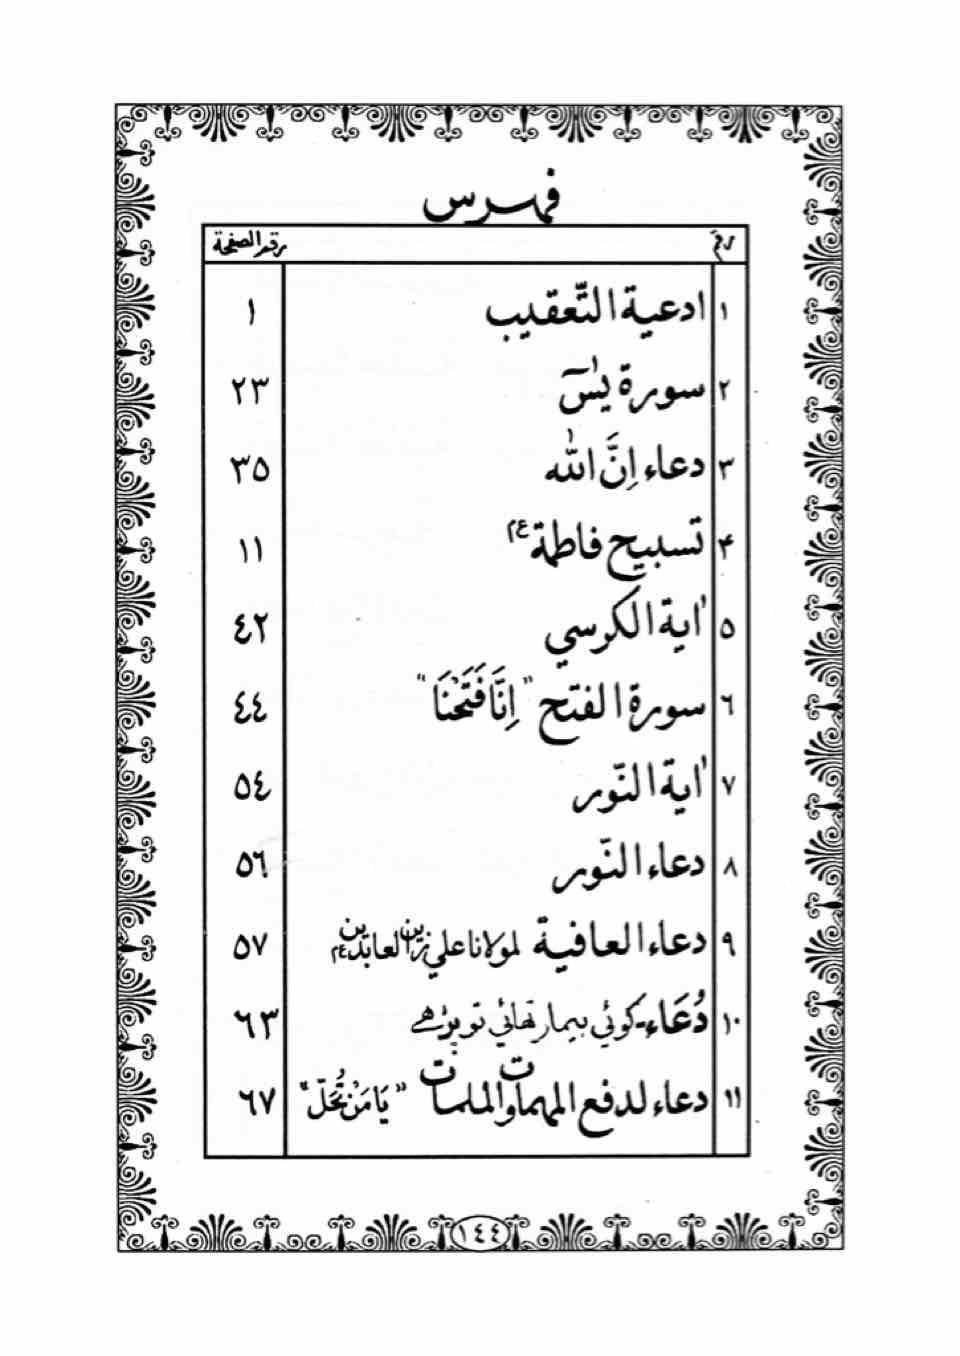 فهرس
رقم رقم الصفحة
١ ادعية التّعقيب ١
٢ سورة يٰسٓ ٢٣
٣ دعاء اِنَّ اللّٰه ٣٥
۴ تسبيح فاطمة ع م ١١
٥ اٰية الكرسي ٤٢
٦ سورة الفتح "اِنَّا فَتَحْنَا" ٤٤
٧ اٰية النّور ٥٤
٨ دعاء النّور ٥٦
٩ دعاء العافية لمولانا علي زين العابدين ع م ٥٧
١٠ دُعَاء - كوئي بيمار نهائي تو پڑهے ٦٣
١١ دعاء لدفع المهمات والملمات "يَا مَنْ تُحَلّ" ٦٧
١٤٤